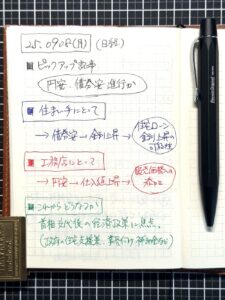 25.0908(月) (日経)
ピックアップ記事
円安、債券安進行か
住まい手にとって
→ 債券安 → 金利上昇 → 住宅ローン金利上昇の可能性
工務店にとって
→ 円安 → 仕入値上昇 → 販売価格への
これからどうなるか
首相交代後の経済政策に焦点。